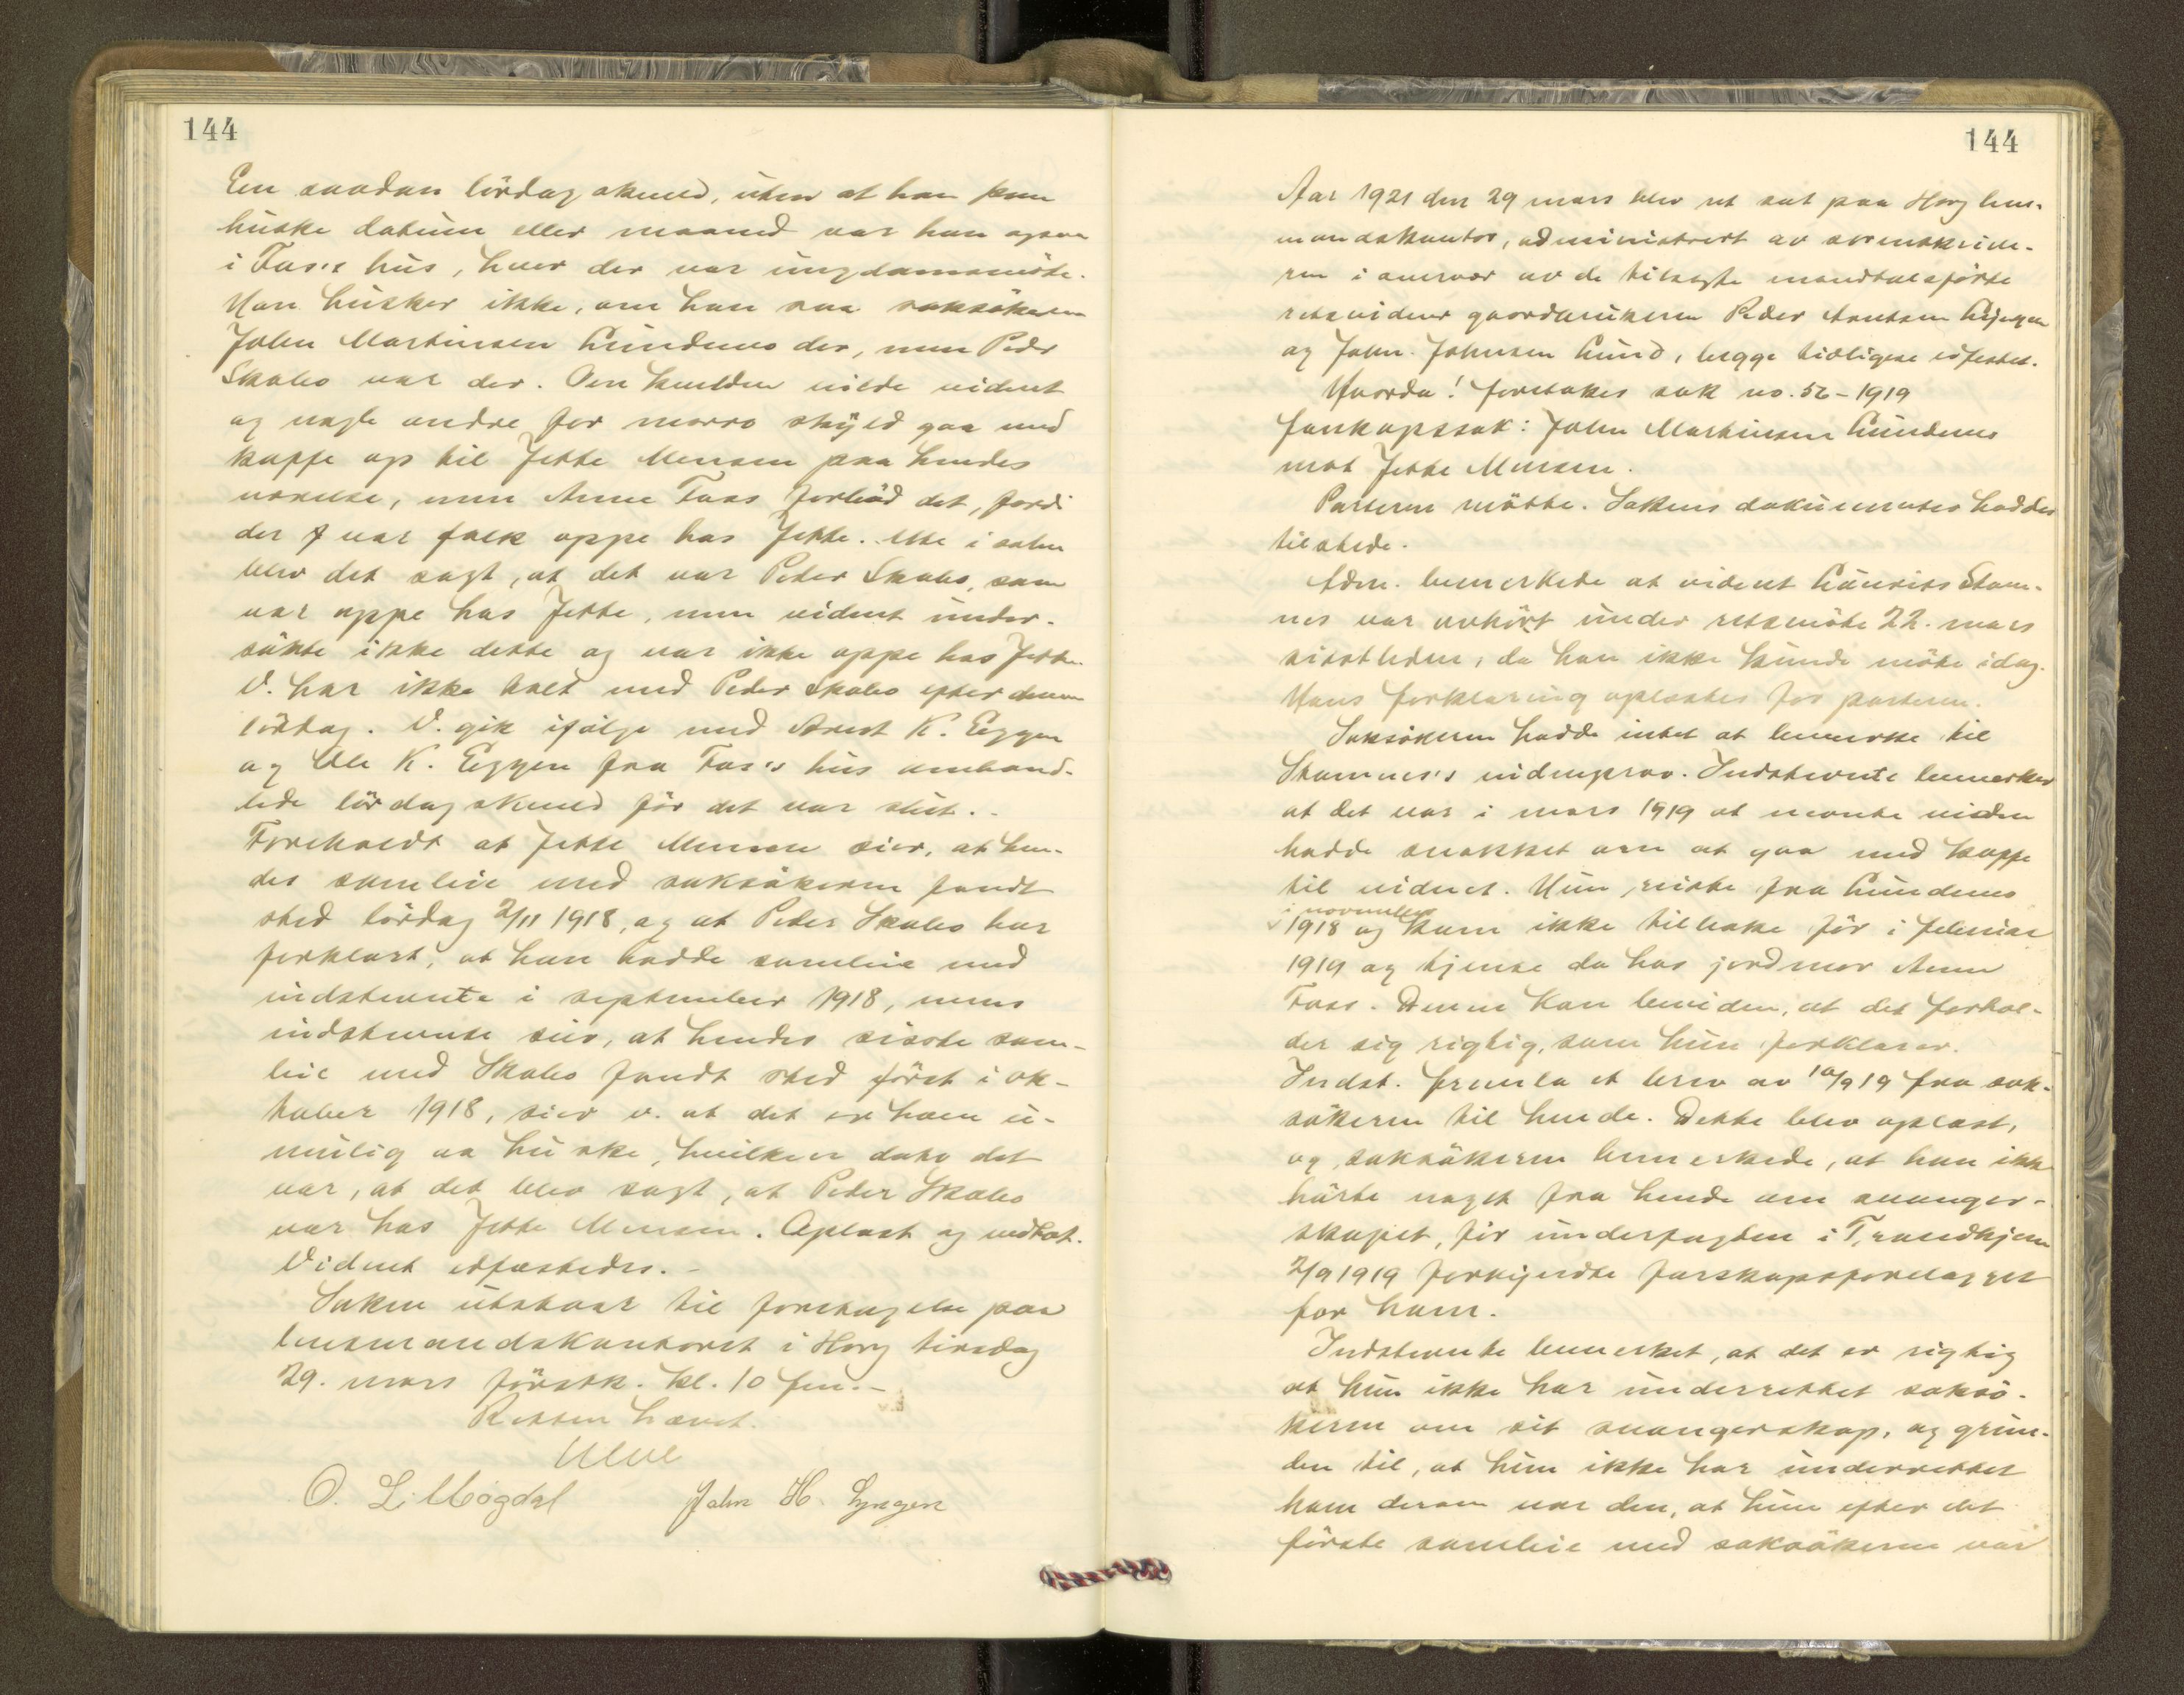 144
En saadan lördagskveld, uten at han kan
huske datum eller maaned var han ogsaa
i Fass's hus, hvor der var ungdomsmöte.
Han husker ikke, om han saa saksökeren
John Martinsen Lundemo der, men Peder
Skabo var der. Den kvelden vilde vidnet
og nogle andre for morro skyld gaa med
kaffe op til Jette Mensen paa hendes
værelse, men Anne Fass forböd det, fordi
der var folk oppe hos Jette. Ute i salen
blev det sagt, at det var Peder Skabo, som
var oppe hos Jette, men vidnet under-
sökte ikke dette og var ikke oppe hos Jette.
V. har ikke talt med Peder Skabo efter denne
lördag. V. gik ifölge med Arnt K. Eggen
og Ole K. Eggen fra Fass's hus omhand-
lede lördagskveld för det var slut. -
Foreholdt at Jette Mensen sier, at hen-
des samleie med saksökeren fandt
sted lördag 2/11 1918, og at Peder Skabo har
forklart, at han hadde samleie med
indstevnte i september 1918, mens
indstevnte sier, at hendes sisste sam-
leie med Skabo fandt sted först i ok-
tober 1918, sier v. at det er ham u-
mulig aa huske, hvilken dato det
var, at det blev sagt, at Peder Skabo
var hos Jette Mensen. Oplæst og vedtat.
Vidnet edfæstedes. -
Saken utstaar til foretagelse paa
lensmandskontoret i Horg tirsdag
29. mars förstk. kl. 10 fm. -
Retten hævet.
O. L. Mögdal John H. Lyngen
144
Aar 1921 den 29 mars blev ret sat paa Horg lens-
mandskontor, administrert av sorenskrive-
ren i overvær av de tilsagte mandtalsförte
retsvidner gaardbrukerne Peder Arntsen
og John Johnsen Lund, begge tidligere edfestet.
Hvorda! foretokes sak no. 56 - 1919
farskapssak: John Martinsen Lundemo
mot Jette Mensen.
Parterne mötte. Sakens dokumenter haddes
tilstede.
Adm. bemerkede at vidnet Laurits Stam-
nes var avhört under retsmöte 22. mars
sisstleden, da han ikke kunde möte idag.
Hans forklaring oplæstes for parterne.
Saksökeren hadde intet at bemerke til
Stamnes's vidneprov. Indstevnte bemerker
at det var i mars 1919 at nævnte vidne
hadde snakket om at gaa med kaffe
til vidnet. Hun reiste fra Lundemo
i november
1918 og kom ikke tilbake för i februar
1919 og tjente da hos jordmor Anne
Fass. Denne kan bevidne, at det forhol-
der sig rigtig, som hun forklarer.
Indst. fremla et brev av 10/9 19 fra sak-
sökeren til hende. Dette blev oplæst,
og saksökeren bemerkede, at han ikke
hörte noget fra hende om svanger-
skapet, för underfogden i Trondhjem
2/9 1919 forkyndte farskapsforelægget
for ham.
Indstevnte bemerket, at det er rigtig
at hun ikke har underrettet saksö-
keren om sit svangerskap, og grun-
den til, at hun ikke har underrettet
ham derom var den, at hun efter det
förste samleie med saksökeren var